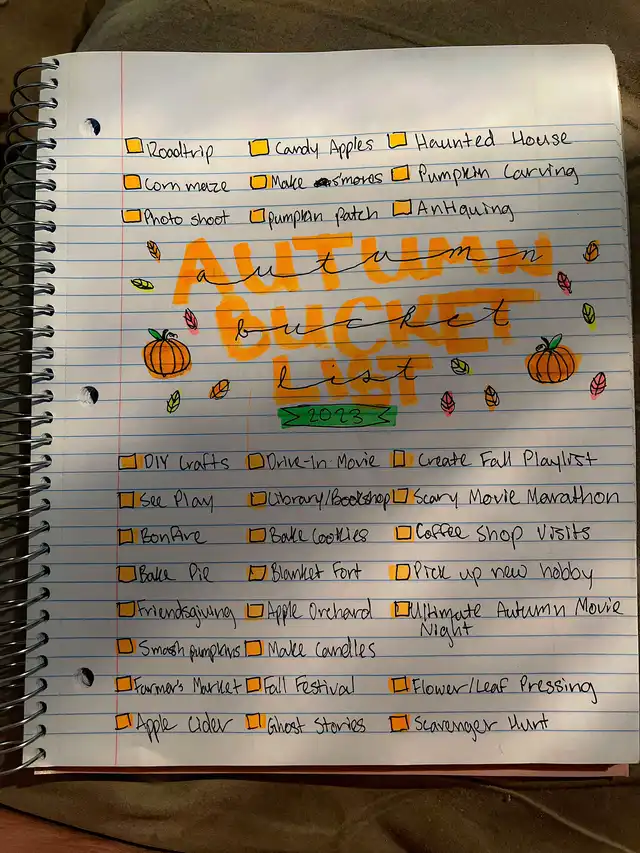 Roadtrip Candy Apples Haunted House
Corn maze Make s'mores Pumpkin Carving
Photo shoot Pumpkin patch Antiquing
AUTUMN
autumn
BUCKET
bucket
LIST
list
2023
DIY Crafts Drive-In Movie Create Fall Playlist
See Play Library/Bookshop Scary Movie Marathon
Bonfire Bake Cookies Coffee Shop Visits
Bake Pie Blanket Fort Pick up new hobby
Friendsgiving Apple Orchard Ultimate Autumn Movie
Night
Smash pumpkins Make Candles
Farmer's Market Fall Festival Flower/Leaf Pressing
Apple Cider Ghost Stories Scavenger Hunt